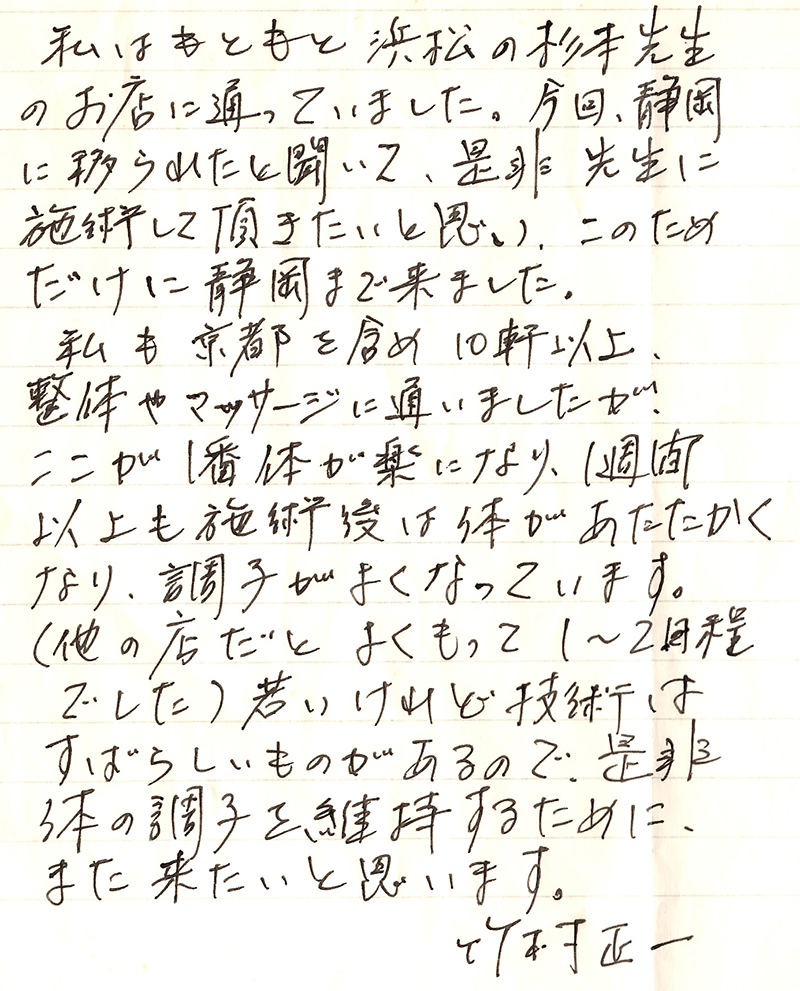 私はもともと浜松の杉本先生
のお店に通っていました。今回、静岡
に移られたと聞いて、是非先生に
施術して頂きたいと思い、このため
だけに静岡まで来ました。
私も京都を含め10軒以上、
整体やマッサージに通いましたが、
ここが1番体が楽になり、1週間
以上も施術後は体があたたかく
なり、調子がよくなっています。
(他の店だとよくもって1~2日程
でした)若いけれど技術は
すばらしいものがあるので、是非
体の調子を維持するために、
また来たいと思います。
竹村正一